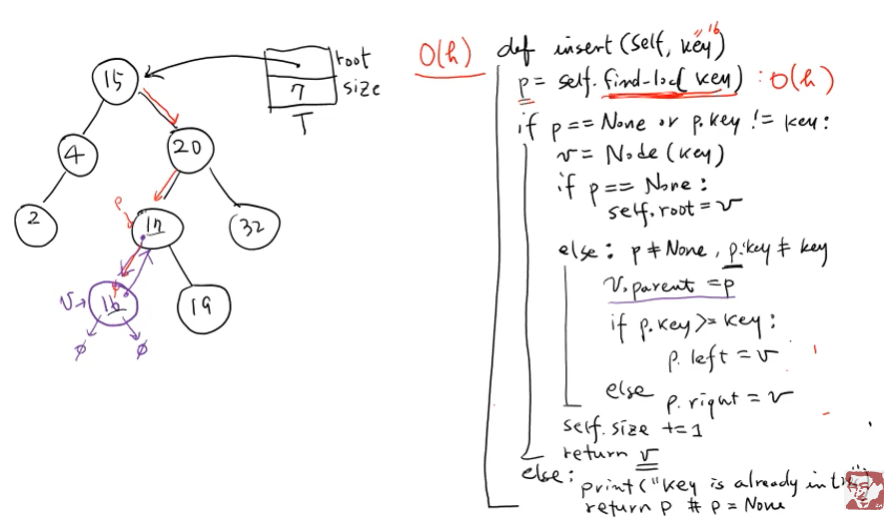 15
4
20
2
17
32
16
19
root
7 size
T
p
v→
ø ø
O(h)
def insert(self, key) "16
p = self.find-loc(key) : O(h)
if p == None or p.key != key:
v = Node(key)
if p == None:
self.root = v
else: p ≠ None, p.key ≠ key
v.parent = p
if p.key >= key:
p.left = v
else
p.right = v
self.size += 1
return v
else:
print("key is already in
return p # p = None